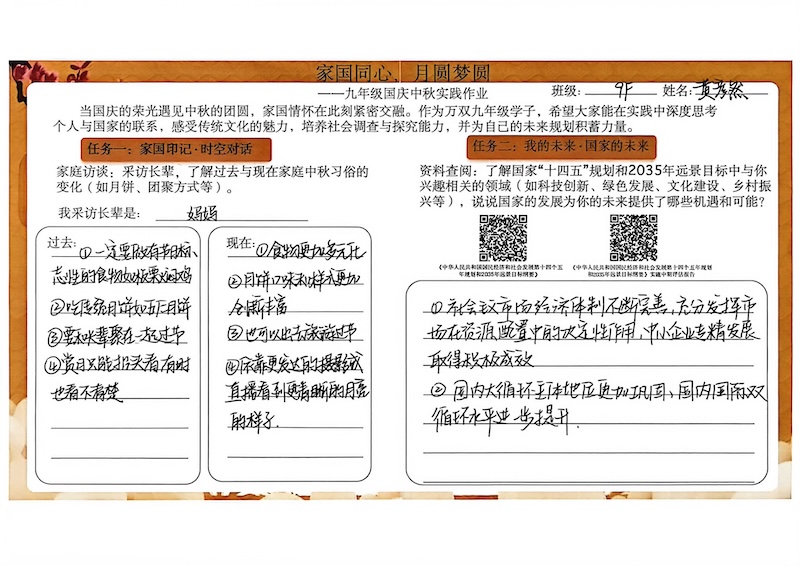 家国同心，月圆梦圆
——九年级国庆中秋实践作业
班级：9F 姓名：黄彦然
当国庆的荣光遇见中秋的团圆，家国情怀在此刻紧密交融。作为万双九年级学子，希望大家能在实践中深度思考
个人与国家的联系，感受传统文化的魅力，培养社会调查与探究能力，并为自己的未来规划积蓄力量。
任务一：家国印记·时空对话
家庭访谈：采访长辈，了解过去与现在家庭中秋习俗的
变化（如月饼、团聚方式等）。
我采访长辈是：妈妈
过去：①一定要做有节日标
志性的食物如板栗焖鸡
②吃传统月饼如五仁月饼
③要和长辈聚在一起过节
④赏月只能抬头看有时
也看不清楚
现在：①食物更加多元化
②月饼口味和样式更加
全面丰富
③也可以出去旅游过节
④依靠更发达的摄影或
直播看到更清晰的月亮
的样子.
任务二：我的未来·国家的未来
资料查阅：了解国家“十四五”规划和2035年远景目标中与你
兴趣相关的领域（如科技创新、绿色发展、文化建设、乡村振
兴等），说说国家的发展为你的未来提供了哪些机遇和可能？
《中华人民共和国国民经济和社会发展第十四个五
年规划和2035年远景目标纲要》
《中华人民共和国国民经济和社会发展第十四个五年规划
和2035年远景目标纲要》实施中期评估报告
①社会主义市场经济体制不断完善，充分发挥市
场在资源配置中的决定性作用，中小企业专精发展
取得积极成效
②国内大循环主体地位更加巩固、国内国际双
循环水平进一步提升.